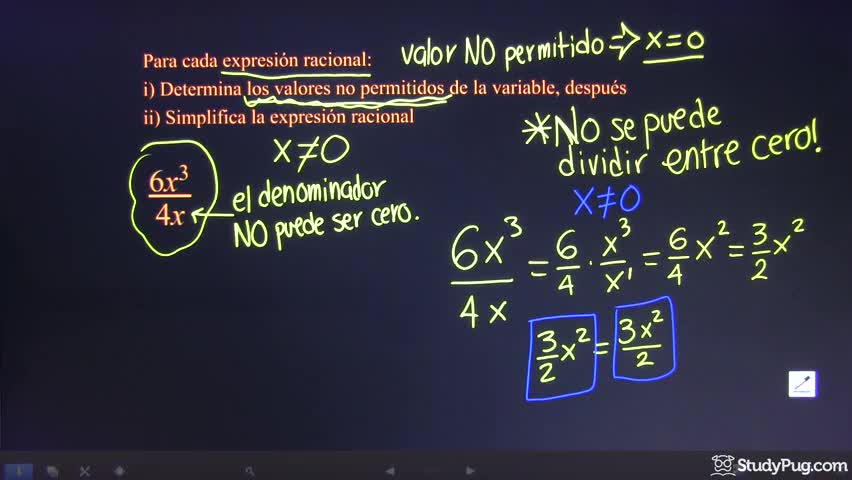 Para cada expresión racional:
valor NO permitido ⇒ x=0
i) Determina los valores no permitidos de la variable, después
ii) Simplifica la expresión racional
x≠0
*NO se puede
dividir entre cero!
6x³/4x
el denominador
NO puede ser cero.
x≠0
6x³/4x = 6/4 · x³/x¹ = 6/4 x² = 3/2 x²
3/2 x² = 3x²/2
StudyPug.com